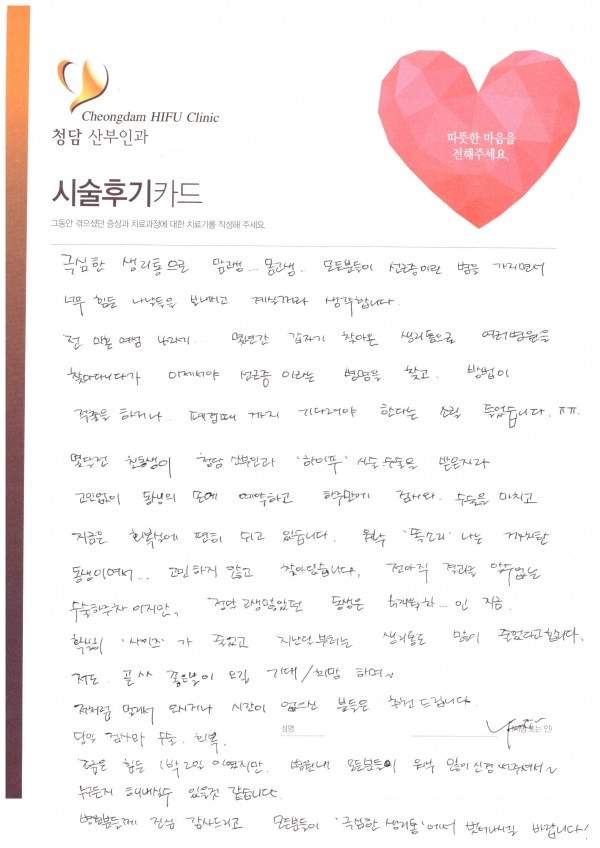 Cheongdam HIFU Clinic
청담 산부인과
따뜻한 마음을
전해주세요.
시술후기카드
그동안 겪으셨던 증상과 치료과정에 대한 치료기를 작성해 주세요.
극심한 생리통으로 맘고생... 몸고생. 모든분들이 선근증이란 병을 가지면서
너무 힘든 나날들을 보내시고 계실거라 생각합니다.
전 미혼 여성 나라기... 몇년간 갑자기 찾아온 생리통으로 여러병원을
찾아다니다가 이제서야 선근증 이라는 병명을 찾고. 방법이
적출을 하거나. 폐경때 까지 기다려야 한다는 소릴 들었습니다. ㅠㅠ.
몇달전 친동생이 청담 산부인과 '하이푸' 시술.수술을 받은지라
고민없이 동생의 손에 예약하고 하루만에 검사와. 수술을 마치고
지금은 회복실에 편히 쉬고 있습니다. 워낙 '똑소리' 나는 까칠한
동생이여서... 고민하지 않고 찾아왔습니다. 전아직 결과를 알수없는
수술하루차 이지만, 정말 고생많았던 동생은 인 지금.
확실히 '사이즈' 가 줄었고 지난달부터는 생리통도 많이 줄었다고합니다.
저도. 곧 좋은날이 오길 기대/희망 하며~
저처럼 멀리서 오시거나 시간이 없으신 분들은 추천 드립니다.
당일 검사와 수술. 회복.
성명
(서명 또는 인)
조금은 힘든 1박 2일 이였지만. 병원내 모든분들이 워낙 많이 신경 써주셔서~
누구든지 해내실수 있을것 같습니다.
병원분들께 진심 감사드리고. 모든분들이 '극심한 생리통'에서 벗어나시길 바랍니다!